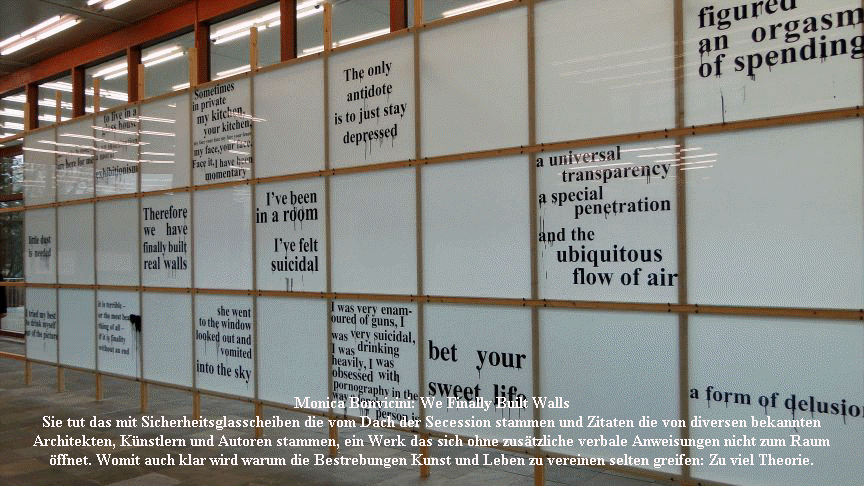 figured
an orgasm
of spending
The only
antidote
is to just stay
depressed
Sometimes
in private
my kitchen,
your kitchen,
my face,your face.
Face it,I have been
momentary
to live in a
exhibitionism
a universal
transparency
a special
penetration
and the
ubiquitous
flow of air
I've been
in a room
I've felt
suicidal
Therefore
we have
finally built
real walls
little dust
is needed
I tried my best
to drink myself
out of the picture
it is terrible -
or the most
thing of all -
if it is finality
without an end
she went
to the window
looked out and
vomited
into the sky
I was very enam-
oured of guns, I
was very suicidal,
I was drinking
heavily, I was
obsessed with
pornography in the
bet your
sweet life
a form of delusio
Monica Bonvicini: We Finally Built Walls
Sie tut das mit Sicherheitsglasscheiben die vom Dach der Secession stammen und Zitaten die von diversen bekannten
Architekten, Künstlern und Autoren stammen, ein Werk das sich ohne zusätzliche verbale Anweisungen nicht zum Raum
öffnet. Womit auch klar wird warum die Bestrebungen Kunst und Leben zu vereinen selten greifen: Zu viel Theorie.